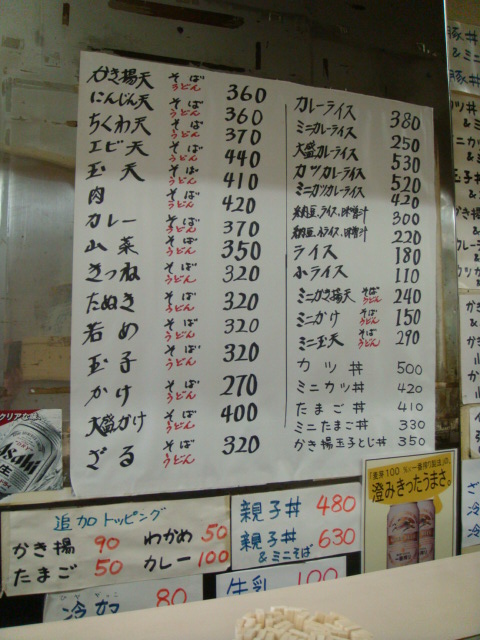 かき揚天 そば うどん 360
にんじん天 そば うどん 360
ちくわ天 そば うどん 370
エビ天 そば うどん 440
玉天 そば うどん 410
肉 そば うどん 420
カレー そば うどん 370
山菜 そば うどん 350
きつね そば うどん 320
たぬき そば うどん 320
若め そば うどん 320
玉子 そば うどん 320
かけ そば うどん 270
大盛かけ そば うどん 400
ざる そば うどん 320
カレーライス 380
ミニカレーライス 250
大盛カレーライス 530
カツカレーライス 520
ミニカツカレーライス 420
納豆、ライス、味噌汁 300
納豆、小ライス、味噌汁 220
ライス 180
小ライス 110
ミニかき揚天 そば うどん 240
ミニかけ そば うどん 150
ミニ玉天 そば うどん 290
カツ丼 500
ミニカツ丼 420
たまご丼 410
ミニたまご丼 330
かき揚玉子とじ丼 350
クリアな
Asahi
生
追加トッピング
かき揚 90 わかめ 50
たまご 50 カレー 100
親子丼 480
親子丼 & ミニそば 630
牛乳 100
80
澄みきったうまさ。
豚丼
& ミニ
豚丼
カツ丼
& ミニ